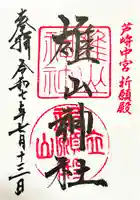 芦峅中宮祈願殿
雄山神社
奉拝 令和七年七月十三日